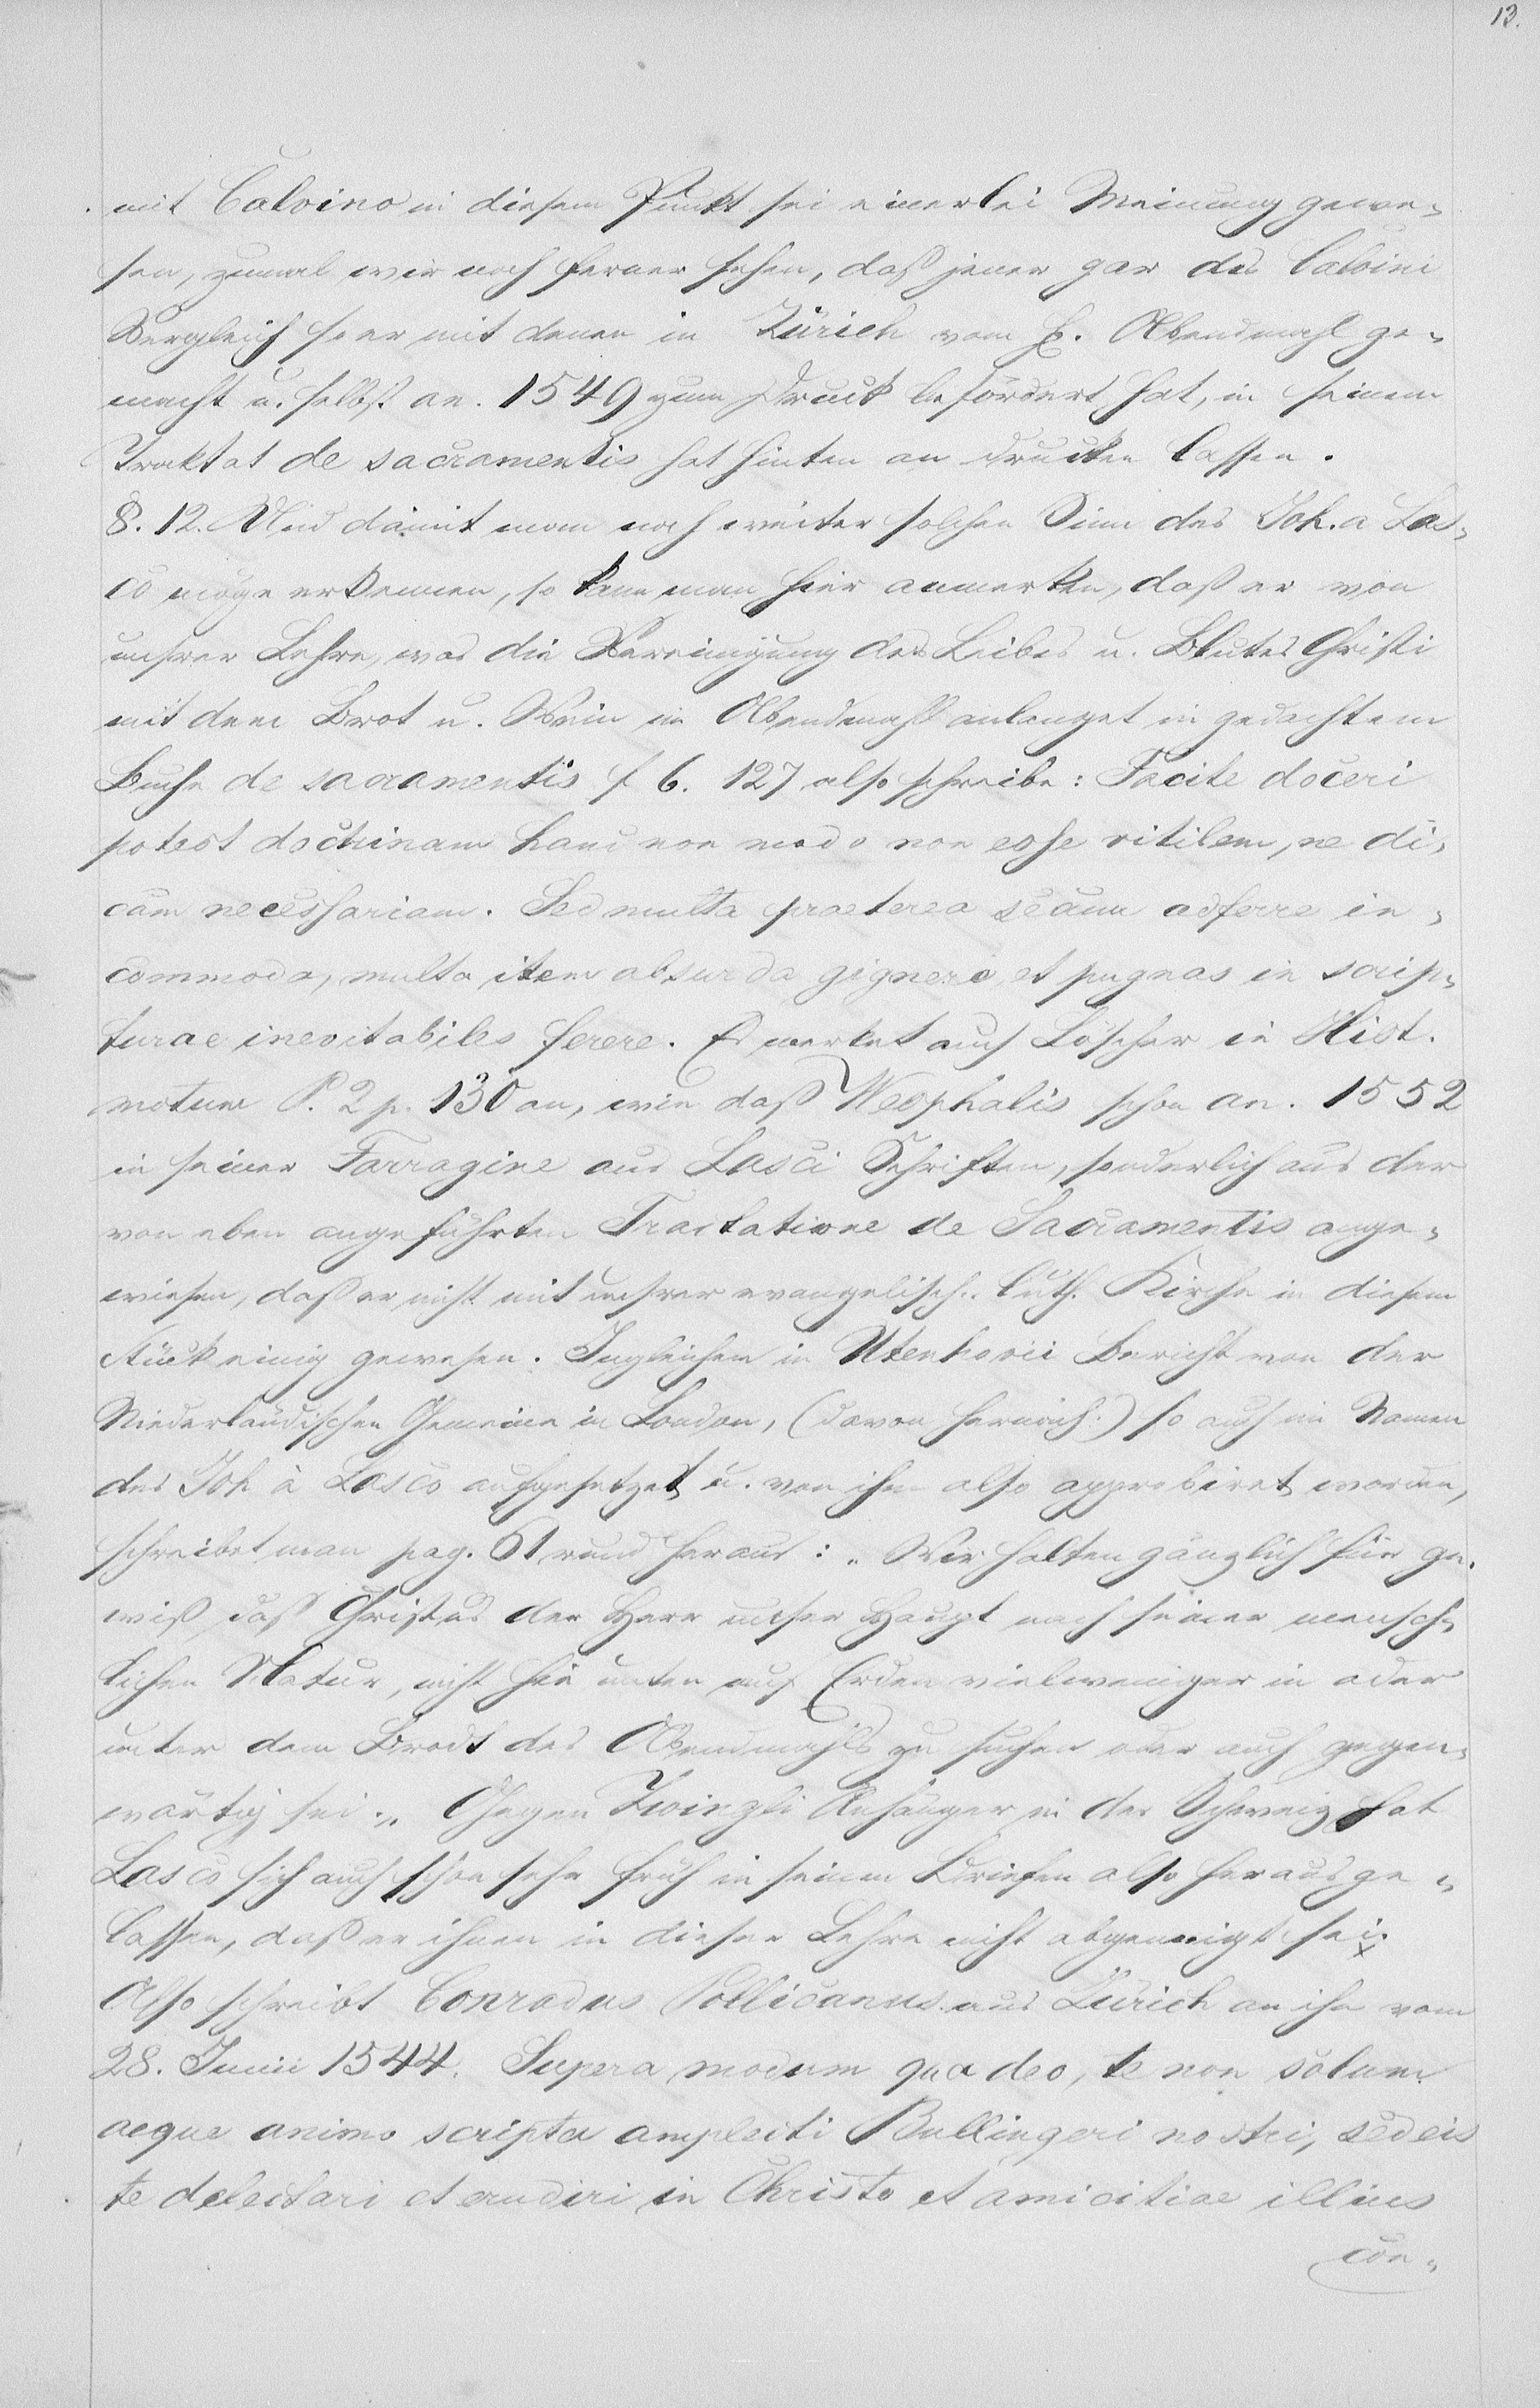 13.
mit Calvino in diesem Punkt sei einerlei Meinung gewe-
sen, zumal wir noch ferner sehen, daß jener gar des Calvini
Vergleich so er mit denen in Zürich vom H. Abendmahl ge-
macht u. selbst an. 1549 zum Druck befördert hat, in seinem
Traktat de sacramentis hat hinten an drucken lassen.
§. 12. Und damit man noch weiter solchen Sinn des Joh. a Las-
co möge erkennen, so kann man hier anmerken, daß er von
unsrer Lehre, was die Vereinigung des Leibes u. Blutes Christi
mit dem Brot u. Wein im Abendmahl anlanget in gedachtem
Buche de sacramentis f 6. 127 also schreibe: Facile doceri
potest doctrinam hanc non modo non esse vitilem, ne di-
cam necessariam. Sed multa praeterea secum adferre in-
commoda, multa item absurda gignere et pugnas in scrip-
turae inevitabiles serere. Es merket auch Löscher in Hist.
motum P. 2 p. 130 an, wie daß Wesphalis schon an. 1552
in seiner Farragine aus Lasci Schriften, sonderlich aus der
von eben angeführten Tractatione de Sacramentis ange-
wiesen, daß er nicht mit unsrer evangelisch. luth. Kirche in diesem
Stück einig gewesen. Ingleichen in Utenhovii Bericht von der
Niederländischen Gemeine in London, (davon hernach:) so auch im Namen
des Joh à Lasco aufgesetzet u. von ihm also approbiret worden,
schreibet man pag. 61 rund heraus: „Wir halten gänzlich für ge-
wiß, daß Christus der Herr unser Haupt nach seiner mensch-
lichen Natur, nicht hie unten auf Erden vielweniger in oder
unter dem Brodt des Abendmahls zu suchen oder auch gegen-
wärtig sei.„ Gegen Zwingli Anhänger in der Schweiz hat
Lasco sich auch schon sehr früh in seinen Briefen also herausge-
lassen, daß er ihnen in dieser Lehre nicht abgeneigt sei. x
Also schreibt Conradus Pollicanus aus Zürich an ihn vom
28. Junii 1544. Supera modum qua deo, te non solum
aeque animo scripta amplecti Bullingeri nostri, sed eis
te delectari et erudiri in Christo et amicitiae illius
con-